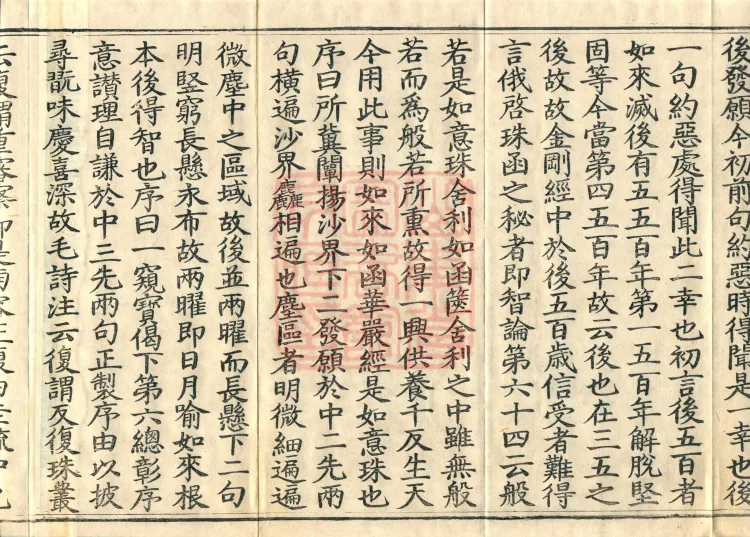 後發願今初前句約惡時得聞是一幸也後
一句約惡處得聞此二幸也初言後五百者
如來滅後有五五百年第一五百年解脫堅
固等今當第四五百年故云後也在三五之
後故故金剛經中於後五百歲信受者難得
言俄啓珠函之秘者即智論第六十四云般
若是如意珠舍利如函篋舍利之中雖無般
若而為般若所熏故得一興供養千反生天
今用此事則如來如函華嚴經是如意珠也
序曰所冀闡揚沙界下二發願於中二先兩
句橫遍沙界麤相遍也塵區者明微細遍遍
微塵中之區域故後並兩曜而長懸下二句
明竪窮長懸永布故兩曜即日月喻如來根
本後得智也序曰一窺寶偈下第六總彰序
意讃理自謙於中三先兩句正製序由以披
尋翫味慶喜深故毛詩注云復謂反復珠叢
云復謂重審察即是